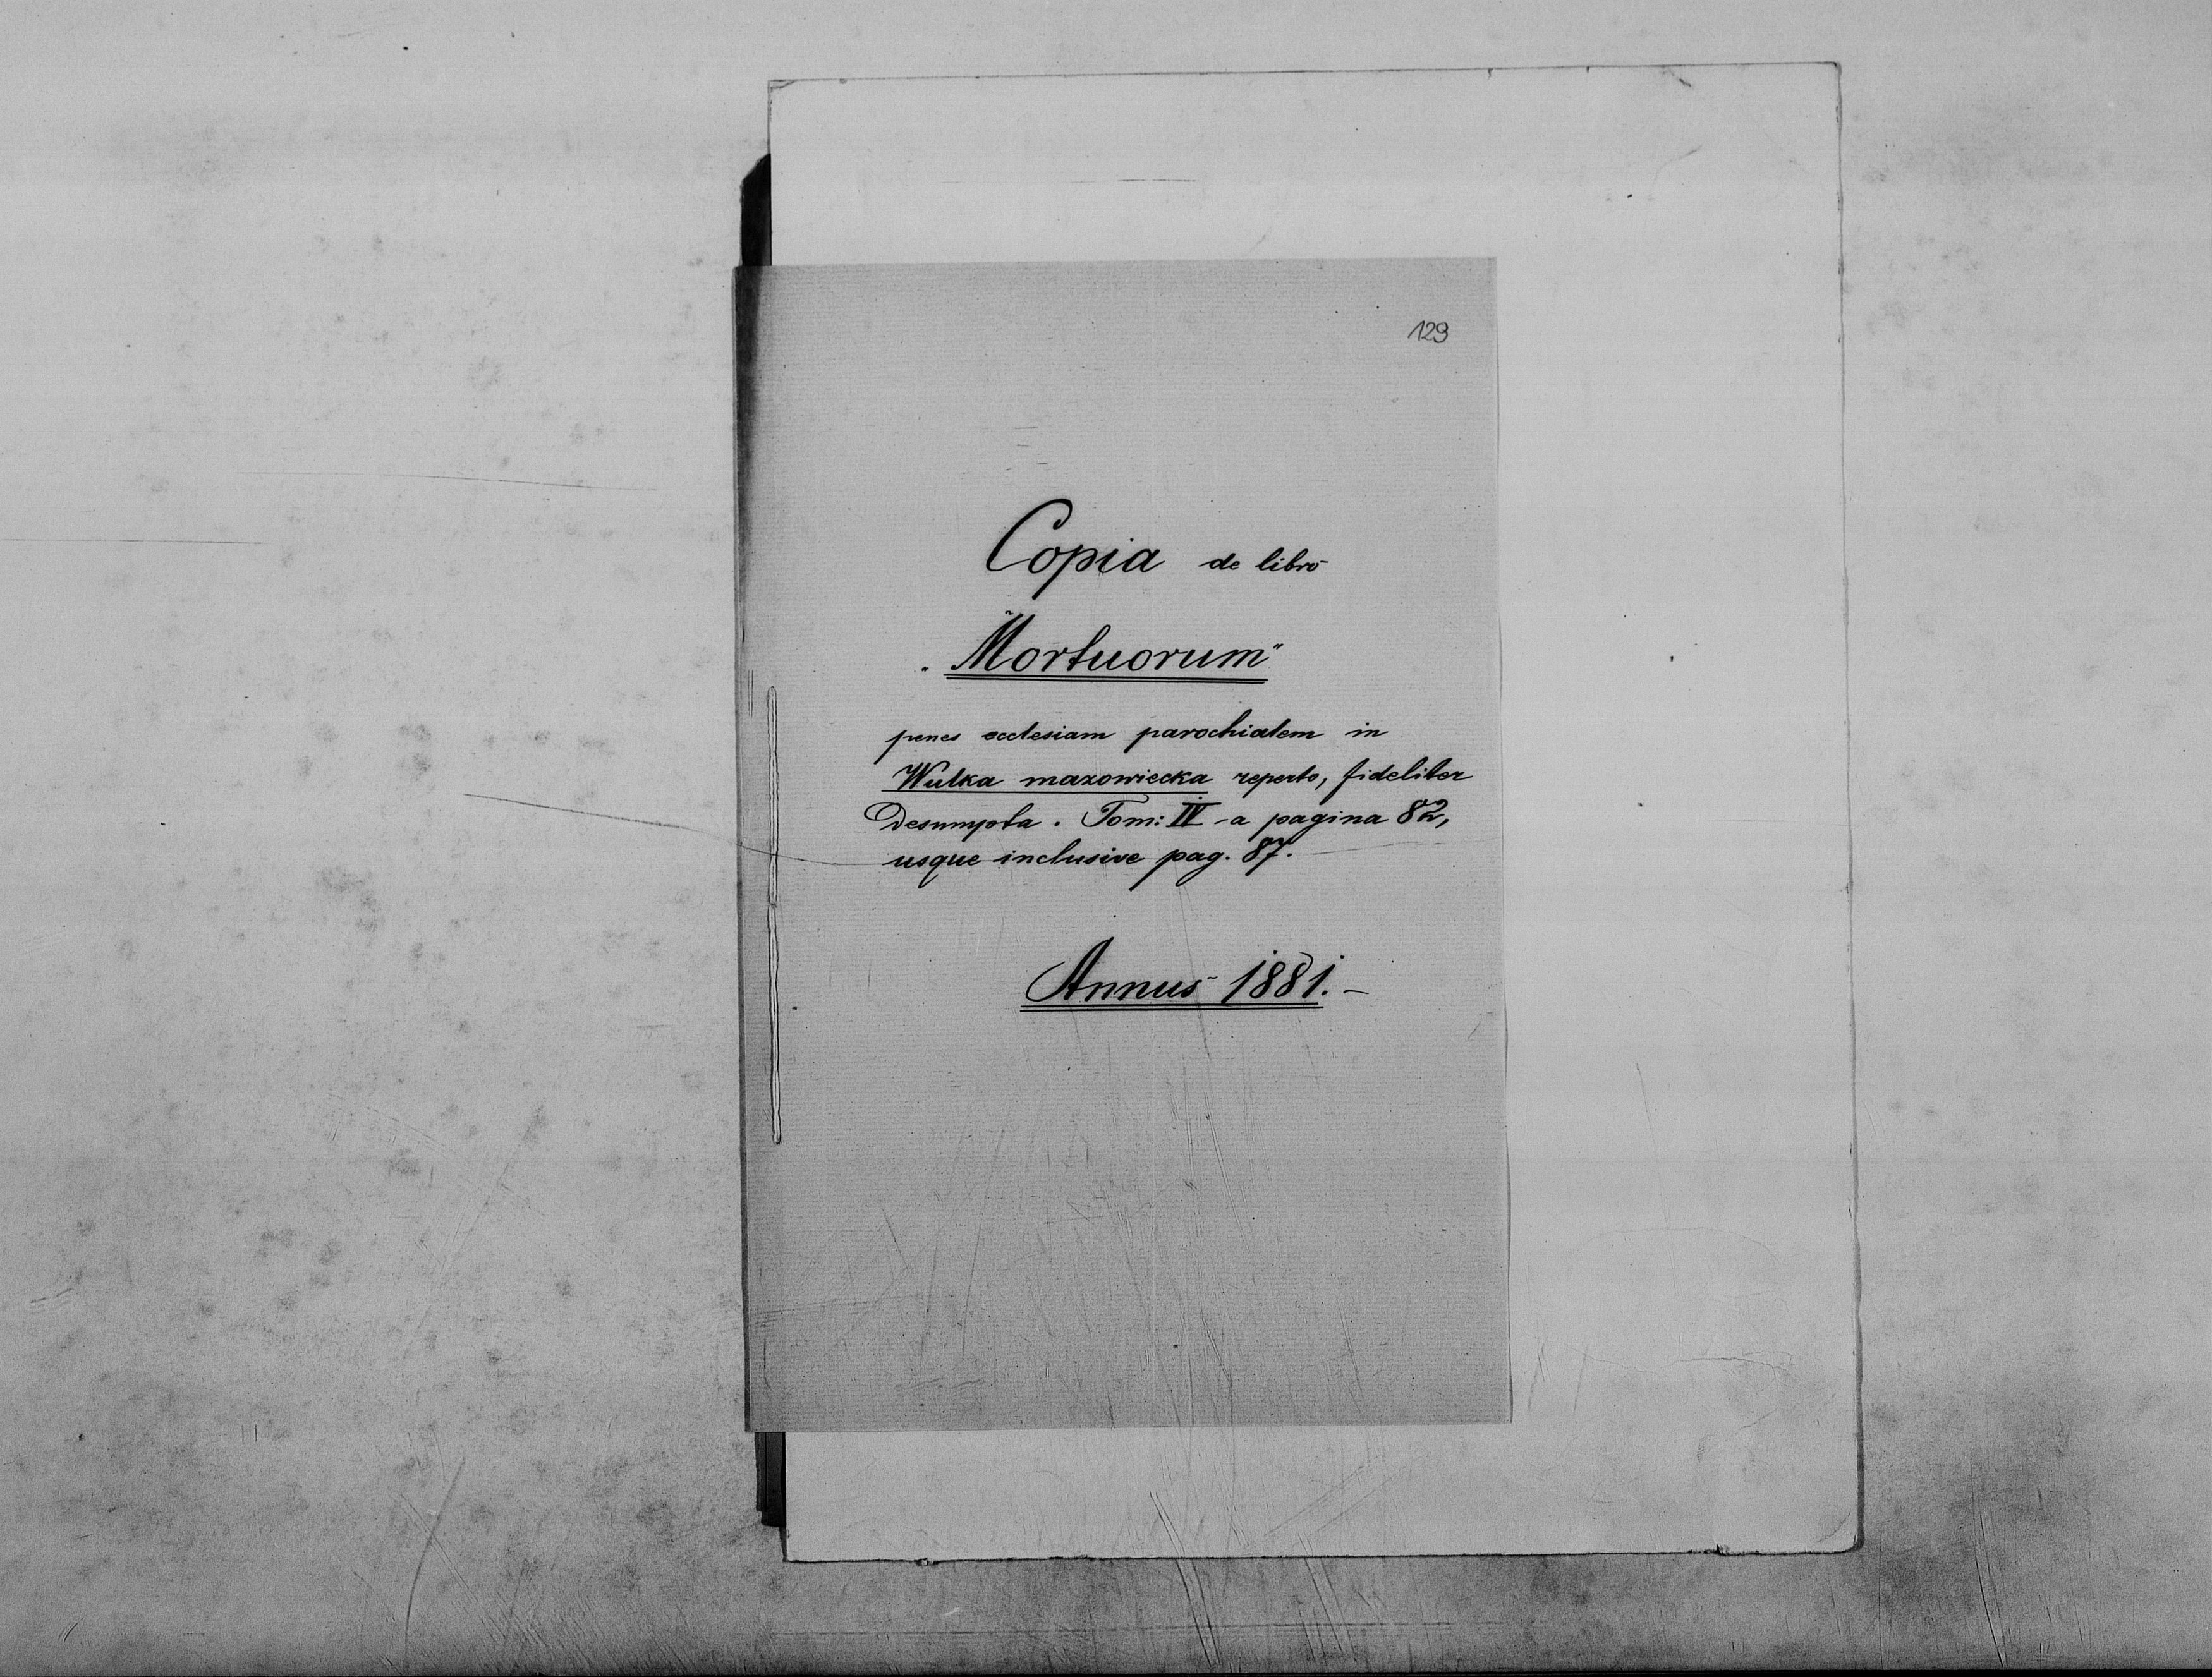 129
Copia de libro
„Mortuorum"
penes ecclesiam parochialem in
Wulka mazowiecka reperto, fideliter
Desumpta. Tom: IV a pagina 82,
usque inclusive pag. 87.
Annus 1881.-